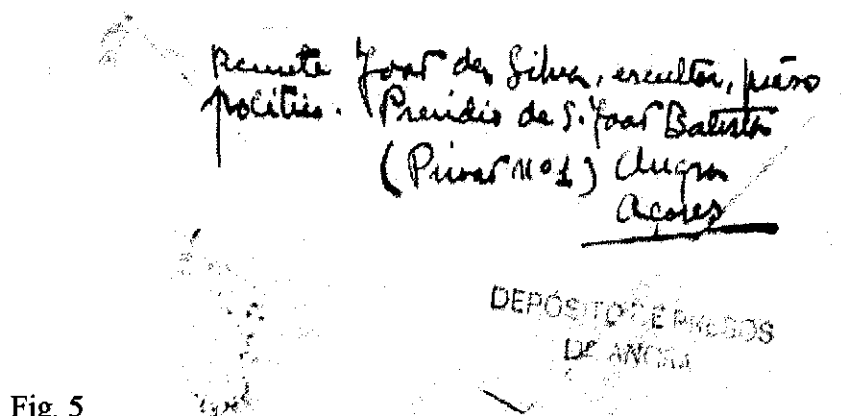 Remete João da Silva, escultor, prêso
político. Presidio de S. João Batista
(Prisão nº 1) Angra
Açores
DEPÓSITO DE PRESOS
DE ANGRA
Fig. 5